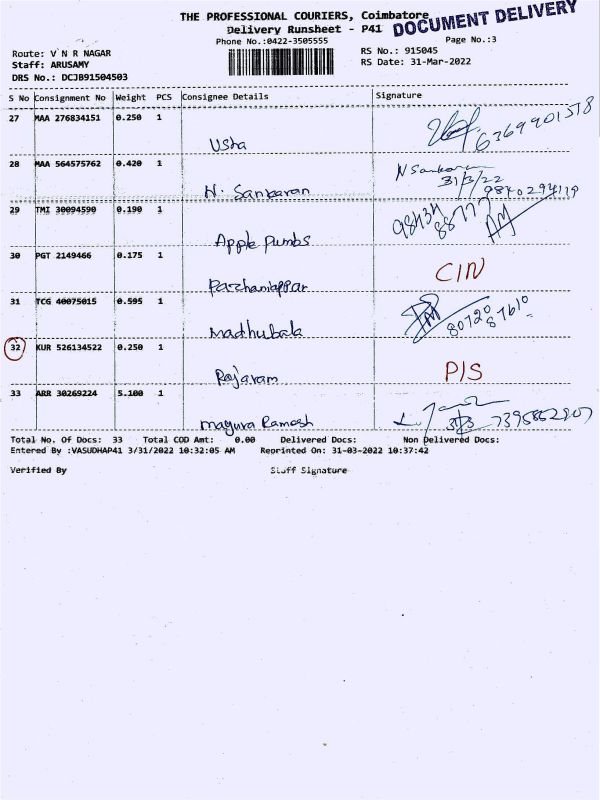 THE PROFESSIONAL COURIERS, Coimbatore
DOCUMENT DELIVERY
Delivery Runsheet - P41
Phone No.:0422-3505555
Page No.:3
Route: V N R NAGAR
RS No.: 915045
Staff: ARUSAMY
RS Date: 31-Mar-2022
DRS No.: DCJB91504503
S No Consignment No Weight PCS Consignee Details Signature
27 MAA 276834151 0.250 1
Usha 6369901578
28 MAA 564575762 0.420 1 N Sankaran
31/3/22
N. Sankaran 9840294119
29 TMI 30094590 0.190 1 98434
88777
Apple Pumbs
30 PGT 2149466 0.175 1 CIN
Pazhaniappar
31 TCG 40075015 0.595 1
80720 87610
Madhubala
32 KUR 526134522 0.250 1
Rajaram P/S
33 ARR 30269224 5.100 1
mayura Ramesh 31/3
Total No. Of Docs: 33 Total COD Amt: 0.00 Delivered Docs: Non Delivered Docs:
Entered By :VASUDHAP41 3/31/2022 10:32:05 AM Reprinted On: 31-03-2022 10:37:42
Verified By Staff Signature